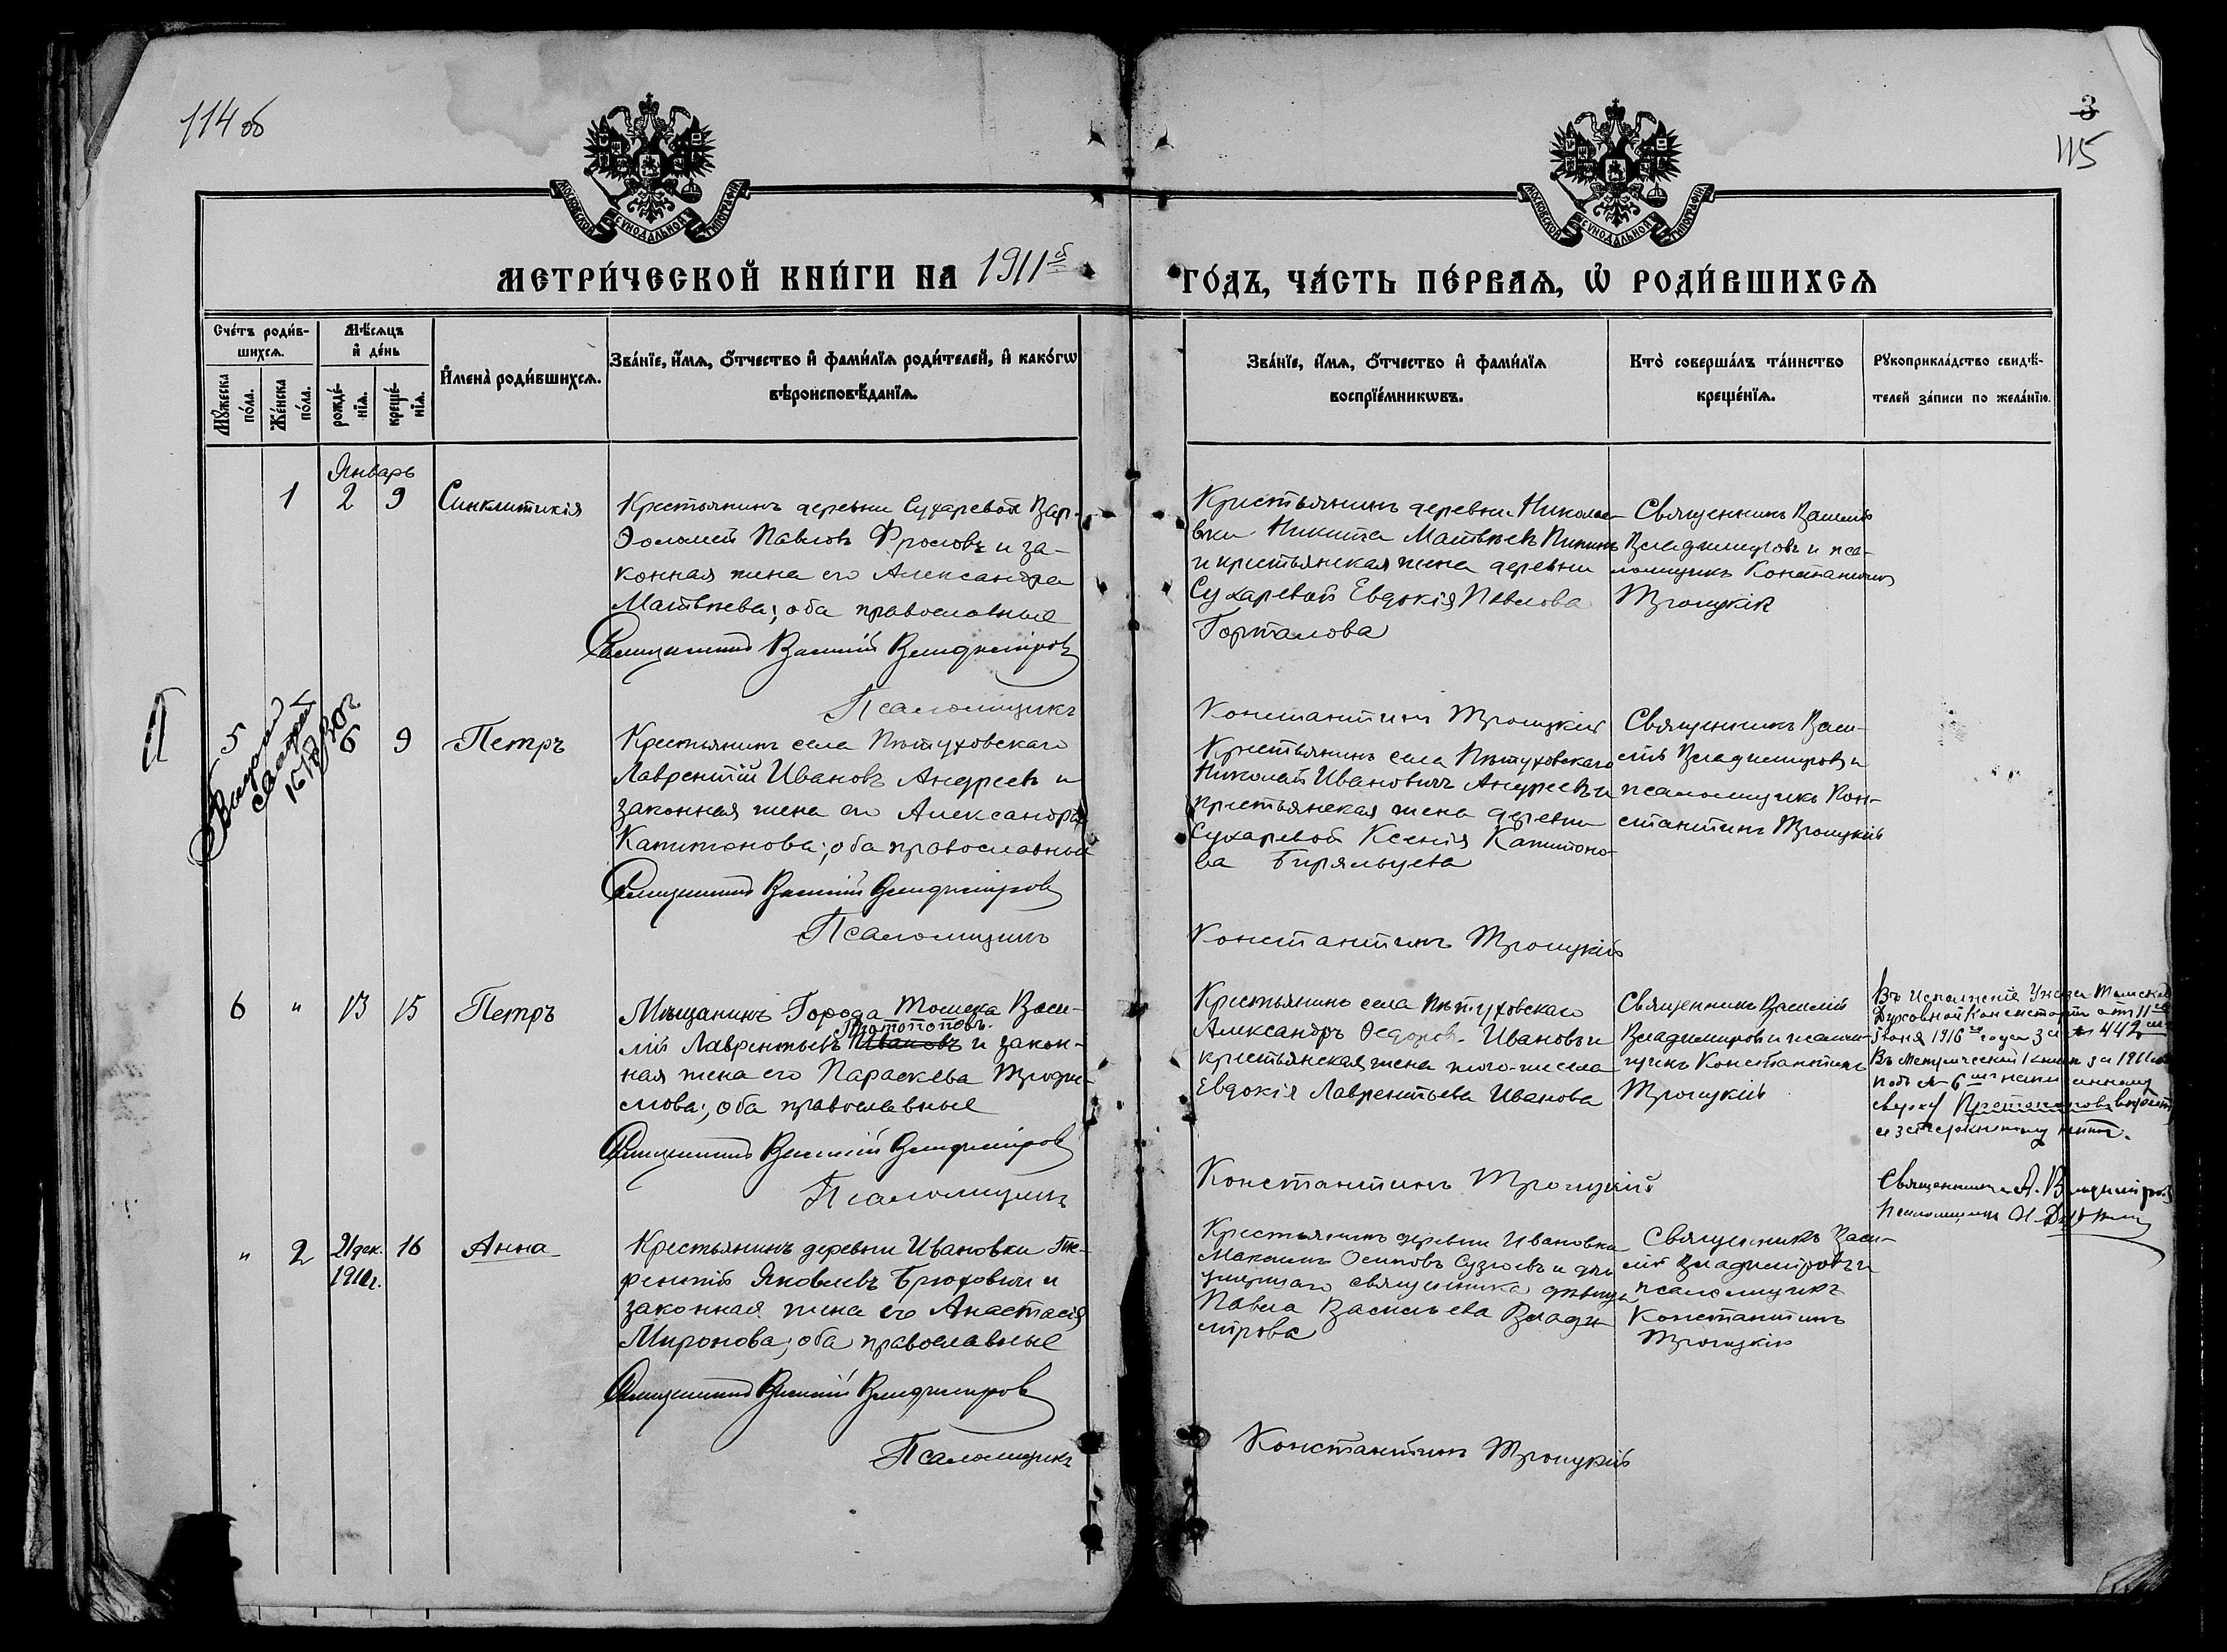 114 об
3
115
МОСКОВСКОЙ СѴНОДАЛЬНОЙ ТИПОГРАФІИ
МОСКОВСКОЙ СѴНОДАЛЬНОЙ ТИПОГРАФІИ
МЕТРИ́ЧЕСКОЙ КНИ́ГИ НА 1911й
ГО́ДЪ, ЧА́СТЬ ПЕ́РВАѦ, Ѽ РОДИ́ВШИХСѦ
Сче́тъ роди́в-
шихсѧ.
Мꙋ́жеска
по́ла.
Же́нска
по́ла.
Мѣ́сѧцъ
и҆ де́нь
рожде́-
нїѧ.
креще́-
нїѧ.
И҆мена̀ роди́вшихсѧ.
Зва́нїе, и҆́мѧ, ѻ҆́тчество и҆ фами́лїѧ роди́телей, и҆ како́гѡ
вѣроисповѣ́данїѧ.
Зва́нїе, и҆́мѧ, ѻ҆́тчество и҆ фами́лїѧ
воспрїе́мникѡвъ.
Кто̀ соверша́лъ та́инство
креще́нїѧ.
Рꙋкоприкла́дство свидѣ́-
телей за́писи по жела́нїю.
Январь
1 2 9 Синклитикія
Крестьянинъ деревни Сухаревой Вар-
ѳоломей Павловъ Фроловъ и за-
конная жена его Александра
Матвѣева; оба православные
Священникъ Василій Владиміровъ
Псаломщикъ
Крестьянинъ деревни Николае-
вки Никита Матвѣевъ
и крестьянская жена деревни
Сухаревой Евдокія Павлова
Горталова
Константинъ Троицкій
Священникъ Василій
Владиміровъ и пса-
ломщикъ Константинъ
Троицкій
5 6 9 Петръ
Крестьянинъ села Пѣтуховскаго
Лаврентій Ивановъ Андреевъ и
законная жена его Александра
Капитонова; оба православные
Священникъ Василій Владиміровъ
Псаломщикъ
Крестьянинъ села Пѣтуховскаго
Николай Ивановичъ Андреевъ и
крестьянская жена деревни
Сухаревой Ксенія Капитоно-
ва Биряльцева
Константинъ Троицкій
Священникъ Васи-
лій Владиміровъ и
псаломщикъ Кон-
стантинъ Троицкій
6 " 13 15 Петръ
Мѣщанинъ Города Томска Васи-
Протопоповъ
лій Лаврентьевъ Ивановъ и закон-
ная жена его Параскева Трофи-
мова; оба православные
Священникъ Василій Владиміровъ
Псаломщикъ
Крестьянинъ села Пѣтуховскаго
Александръ Ѳедоров. Ивановъ и
крестьянская жена того-же села
Евдокія Лаврентьева Иванова
Константинъ Троицкій
Священникъ Василій
Владиміровъ и псалом-
щикъ Константинъ
Троицкій
Въ исполненіе Указа Томской
Духовной Консисторіи отъ 11го
Іюня 1916го года за № 442
Въ метрической книгѣ за 1911 годъ
подъ № 6 написанному
сверху Протопоповъ вѣрить
и зачеркнутому
Священникъ А. Владиміровъ
Псаломщикъ
" 2 21 дек. 16 Анна
1910г.
Крестьянинъ деревни Ивановки Те-
рентій Яковлевъ Брюховъ и
законная жена его Анастасія
Миронова; оба православные
Священникъ Василій Владиміровъ
Псаломщикъ
Крестьянинъ деревни Ивановки
Максимъ Осиповъ Сузговъ и дочь
умершаго священника дѣвица
Павла Васильева Влади-
мірова
Константинъ Троицкій
Священникъ Васи-
лій Владиміровъ и
псаломщикъ
Константинъ
Троицкій